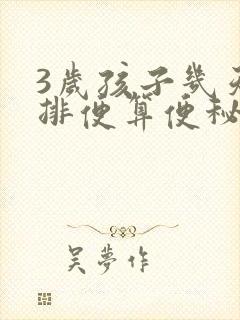 3歲孩子幾天
排便算便秘
吳夢作